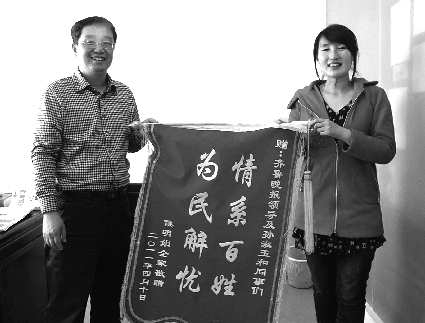 赠：齐鲁晚报领导及孙淑玉和同事们
情系百姓
为民解忧
陈明彩全家敬赠
二〇一一年四月十日